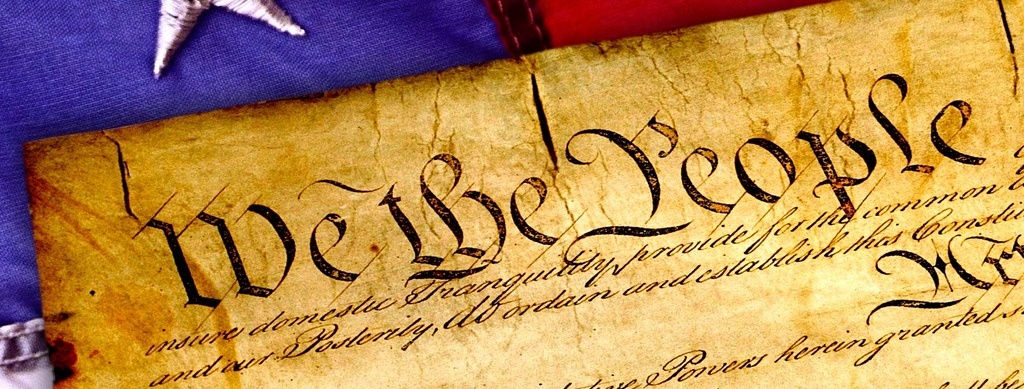 We the People
insure domestic Tranquility, provide for the common
and our Posterity, do ordain and establish this Consti
Powers herein granted